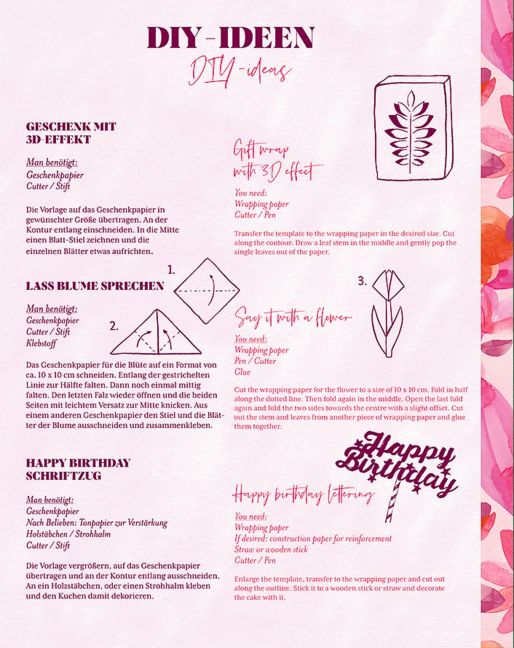 DIY-IDEEN
DIY-ideas
GESCHENK MIT
3D-EFFEKT
Man benötigt:
Geschenkpapier
Cutter / Stift
Die Vorlage auf das Geschenkpapier in
gewünschter Größe übertragen. An der
Kontur entlang einschneiden. In die Mitte
einen Blatt-Stiel zeichnen und die
einzelnen Blätter etwas aufrichten.
Gift wrap
with 3D effect
You need:
Wrapping paper
Cutter / Pen
Transfer the template to the wrapping paper in the desired size. Cut
along the contour. Draw a leaf stem in the middle and gently pop the
single leaves out of the paper.
LASS BLUME SPRECHEN
Man benötigt:
Geschenkpapier
Cutter / Stift
Klebstoff
1.
2.
3.
Das Geschenkpapier für die Blüte auf ein Format von
ca. 10 x 10 cm schneiden. Entlang der gestrichelten
Linie zur Hälfte falten. Dann noch einmal mittig
falten. Den letzten Falz wieder öffnen und die beiden
Seiten mit leichtem Versatz zur Mitte knicken. Aus
einem anderen Geschenkpapier den Stiel und die Blät-
ter der Blume ausschneiden und zusammenkleben.
Say it with a flower
You need:
Wrapping paper
Pen / Cutter
Glue
Cut the wrapping paper for the flower to a size of 10 x 10 cm. Fold in half
along the dotted line. Then fold again in the middle. Open the last fold
again and fold the two sides towards the centre with a slight offset. Cut
out the stem and leaves from another piece of wrapping paper and glue
them together.
HAPPY BIRTHDAY
SCHRIFTZUG
Man benötigt:
Geschenkpapier
Nach Belieben: Tonpapier zur Verstärkung
Holzstäbchen / Strohhalm
Cutter / Stift
Die Vorlage vergrößern, auf das Geschenkpapier
übertragen und an der Kontur entlang ausschneiden.
An ein Holzstäbchen, oder einen Strohhalm kleben
und den Kuchen damit dekorieren.
Happy
Birthday
Happy birthday lettering
You need:
Wrapping paper
If desired: construction paper for reinforcement
Straw or wooden stick
Cutter / Pen
Enlarge the template, transfer to the wrapping paper and cut out
along the outline. Stick it to a wooden stick or straw and decorate
the cake with it.